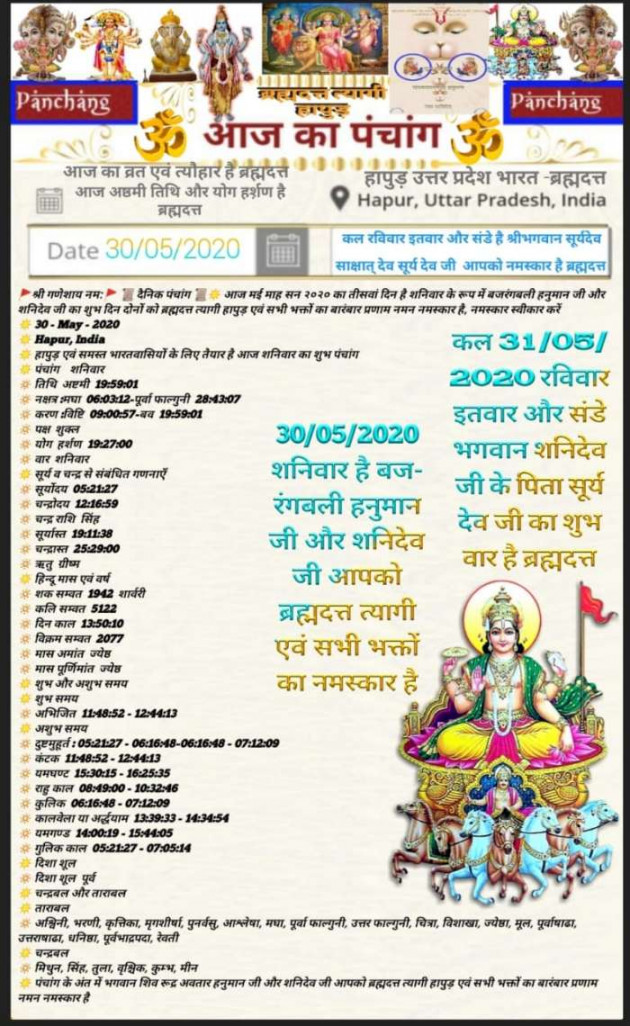 Panchang
Panchang
ब्रह्मदत्त त्यागी
हापुड़
ॐ आज का पंचांग ॐ
आज का व्रत एवं त्यौहार है ब्रह्मदत्त
आज अष्ठमी तिथि और योग हर्शण है
ब्रह्मदत्त
हापुड़ उत्तर प्रदेश भारत -ब्रह्मदत्त
Hapur, Uttar Pradesh, India
Date 30/05/2020
कल रविवार इतवार और संडे है श्रीभगवान सूर्यदेव
साक्षात् देव सूर्य देव जी आपको नमस्कार है ब्रह्मदत्त
🚩श्री गणेशाय नम:🚩 📜 दैनिक पंचांग 📜 ☀ आज मई माह सन २०२० का तीसवां दिन है शनिवार के रूप में बजरंगबली हनुमान जी और
शनिदेव जी का शुभ दिन दोनों को ब्रह्मदत्त त्यागी हापुड़ एवं सभी भक्तों का बारंबार प्रणाम नमन नमस्कार है, नमस्कार स्वीकार करें
30 - May - 2020
Hapur, India
हापुड़ एवं समस्त भारतवासियों के लिए तैयार है आज शनिवार का शुभ पंचांग
पंचांग शनिवार
तिथि अष्टमी 19:59:01
नक्षत्र :मघा 06:03:12-पूर्वा फाल्गुनी 28:43:07
करण :विष्टि 09:00:57-बव 19:59:01
पक्ष शुक्ल
योग हर्शण 19:27:00
वार शनिवार
सूर्य व चन्द्र से संबंधित गणनाएँ
सूर्योदय 05:21:27
चन्द्रोदय 12:16:59
चन्द्र राशि सिंह
सूर्यास्त 19:11:38
चन्द्रास्त 25:29:00
ऋतु ग्रीष्म
हिन्दू मास एवं वर्ष
शक सम्वत 1942 शार्वरी
कलि सम्वत 5122
दिन काल 13:50:10
विक्रम सम्वत 2077
मास अमांत ज्येष्ठ
मास पूर्णिमांत ज्येष्ठ
शुभ और अशुभ समय
शुभ समय
अभिजित 11:48:52 - 12:44:13
अशुभ समय
दुष्टमुहूर्त : 05:21:27 - 06:16:48-06:16:48 - 07:12:09
कंटक 11:48:52 - 12:44:13
यमघण्ट 15:30:15 - 16:25:35
राहु काल 08:49:00 - 10:32:46
कुलिक 06:16:48 - 07:12:09
कालवेला या अर्द्धयाम 13:39:33 - 14:34:54
यमगण्ड 14:00:19 - 15:44:05
गुलिक काल 05:21:27 - 07:05:14
दिशा शूल
दिशा शूल पूर्व
चन्द्रबल और ताराबल
ताराबल
अश्विनी, भरणी, कृत्तिका, मृगशीर्षा, पुनर्वसु, आश्लेषा, मघा, पूर्वा फाल्गुनी, उत्तर फाल्गुनी, चित्रा, विशाखा, ज्येष्ठा, मूल, पूर्वाषाढा,
उत्तराषाढा, धनिष्ठा, पूर्वभाद्रपदा, रेवती
चन्द्रबल
मिथुन, सिंह, तुला, वृश्चिक, कुम्भ, मीन
पंचांग के अंत में भगवान शिव रूद्र अवतार हनुमान जी और शनिदेव जी आपको ब्रह्मदत्त त्यागी हापुड़ एवं सभी भक्तों का बारंबार प्रणाम
नमन नमस्कार है
30/05/2020
शनिवार है बज-
रंगबली हनुमान
जी और शनिदेव
जी आपको
ब्रह्मदत्त त्यागी
एवं सभी भक्तों
का नमस्कार है
कल 31/05/
2020 रविवार
इतवार और संडे
भगवान शनिदेव
जी के पिता सूर्य
देव जी का शुभ
वार है ब्रह्मदत्त